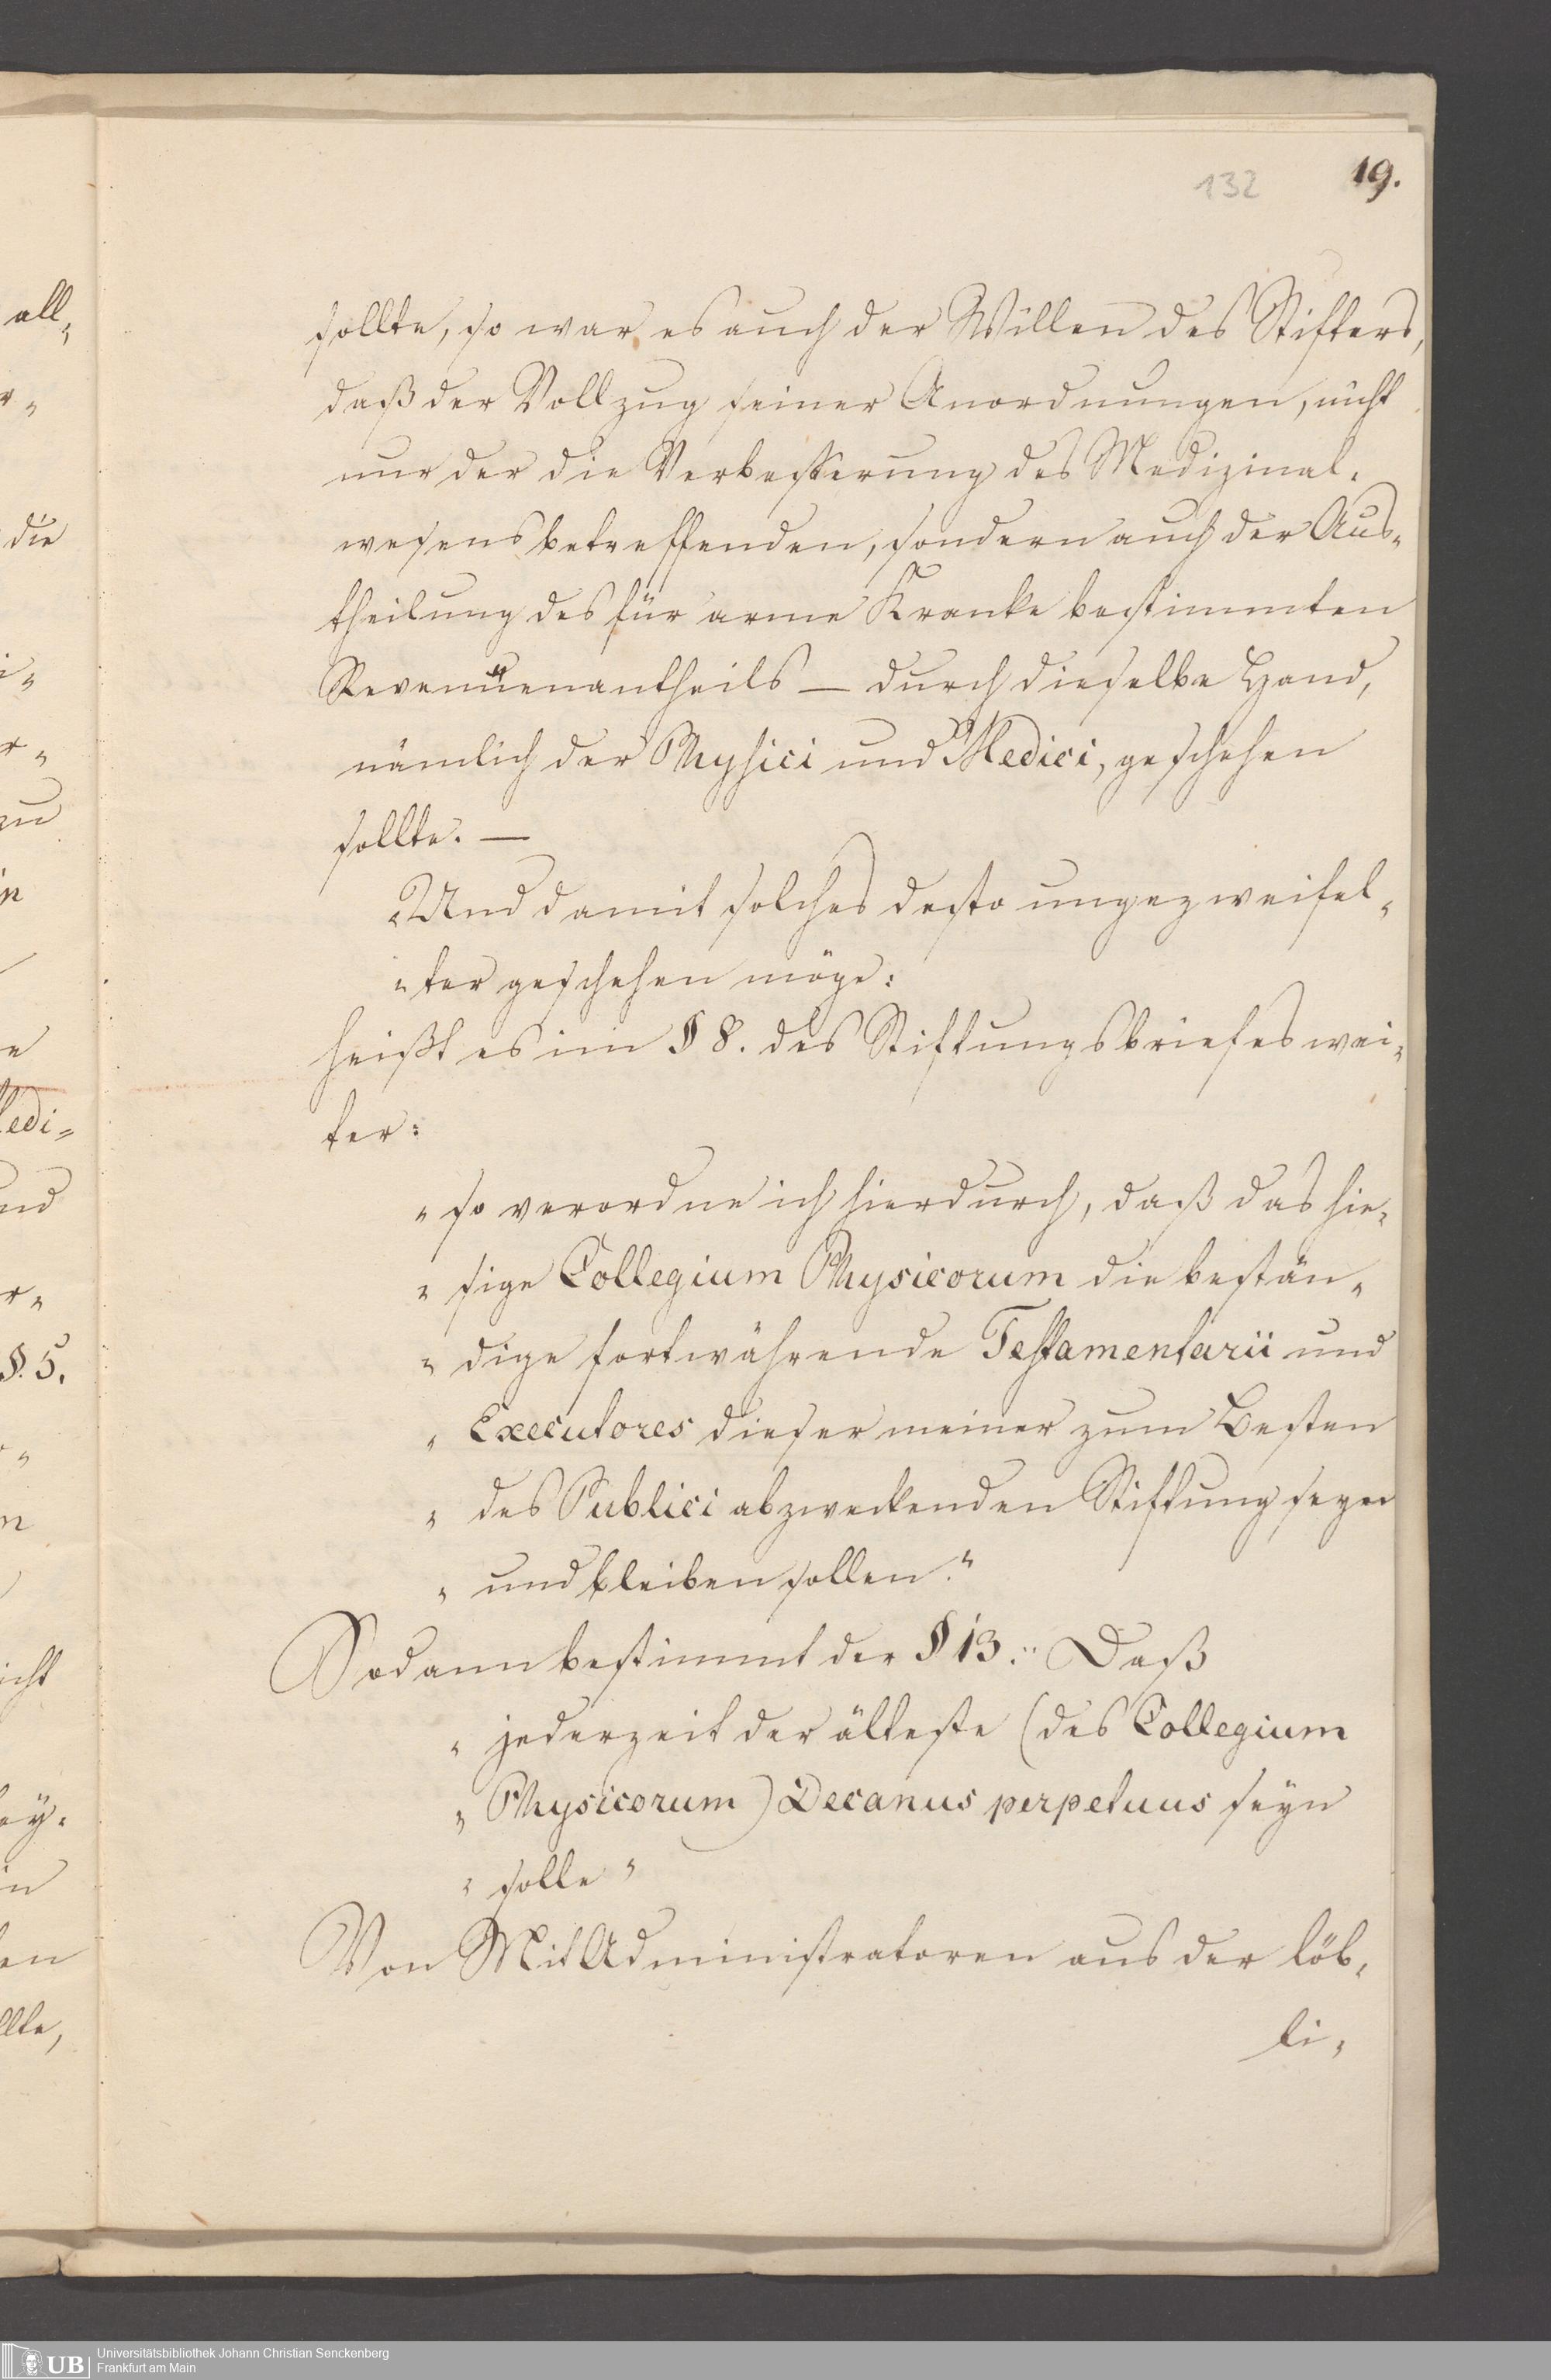 132 19.
sollte, so war es auch der Willen des Stifters,
daß der Vollzug seiner Anordnungen, nicht
nur der die Verbesserung des Medizinal-
wesens betreffenden, sondern auch der Aus-
theilung des für arme Kranke bestimmten
Revenüenantheils — durch dieselbe Hand,
nämlich der Physici und Medici, geschehen
sollte. —
„Und damit solches desto ungezweifel-
„ter geschehen möge:
heißt es im § 8. des Stiftungsbriefes wei-
ter:
„so verordne ich hierdurch, daß das hie-
„sige Collegium Physicorum die bestän-
„dige fortwährende Testamentarii und
„Executores dieser meiner zum Besten
„des Publici abzweckenden Stiftung seyen
„und bleiben sollen."
Sodann bestimmt der § 13.: Daß
„jederzeit der älteste (des Collegium
„Physicorum) Decanus perpetuus seyn
„solle"
Von Mit Administratoren aus der löb-
li-
all-
r-
die
i-
r-
zu
in
e
Medi-
und
r-
§. 5.
n
icht
ey-
in
en
llte,
UB Universitätsbibliothek Johann Christian Senckenberg
Frankfurt am Main